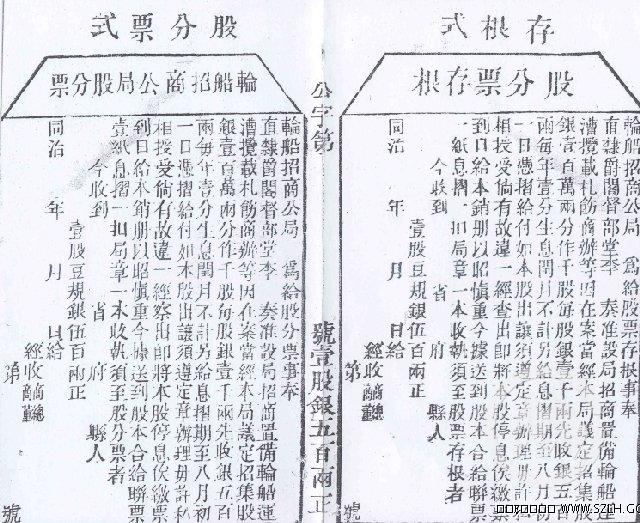 存根式
股分票存根
輪船招商公局　為給股票存根事奉
直隸爵閣督部堂李　奏准設局招商置備輪船運
漕攬載札飭商辦等因在案當經本局議定招集股
銀壹百萬兩分作千股每股銀壹千兩先收銀五百
兩每年壹分生息閏月不計另給息摺期至八月初
一日憑摺給付如本股出讓須遵定章辦理毋許私
相授受倘有故違一經查出即將本股停息俟繳票
到日給本銷册以昭慎重今據送到股本合給聯票
一紙息摺一扣局章一本收執須至股票存根者
今收到　省　府　縣人
壹股豆規銀伍百兩正
同治　年　月　日給
經收
第　號
公字第　號壹股銀五百兩正
股分票式
輪船招商公局股分票
輪船招商公局　為給股分票事奉
直隸爵閣督部堂李　奏准設局招商置備輪船運
漕攬載札飭商辦等因在案當經本局議定招集股
銀壹百萬兩分作千股每股銀壹千兩先收銀五百
兩每年壹分生息閏月不計另給息摺期至八月初
一日憑摺給付如本股出讓須遵定章辦理毋許私
相授受倘有故違一經察出即將本股停息俟繳票
到日給本銷册以昭慎重今據送到股本合給聯票
壹紙息摺一扣局章一本收執須至股分票者
今收到　省　府　縣人
壹股豆規銀伍百兩正
同治　年　月　日給
經收
第　號